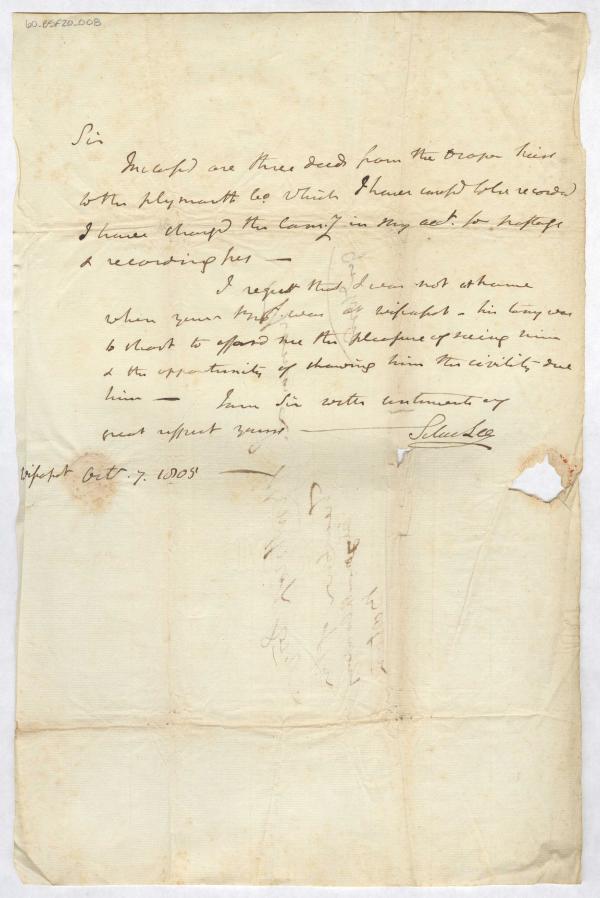 60_BSF20_008
Sir
Inclosd are three deeds from the Draper heirs
to the plymouth Co which I have causd to be recorded
I have charged the Compy in my act. for postage
& recording fees —
I regret that I was not at home
when your was at wiscasset - his tarry was
to short to afford me the pleasure of seeing him
& the opportunity of shewing him the civility due
him — I am Sir with sentiments of
great respect yours — Silas Lee
wiscasset Oct. 7. 1805 —